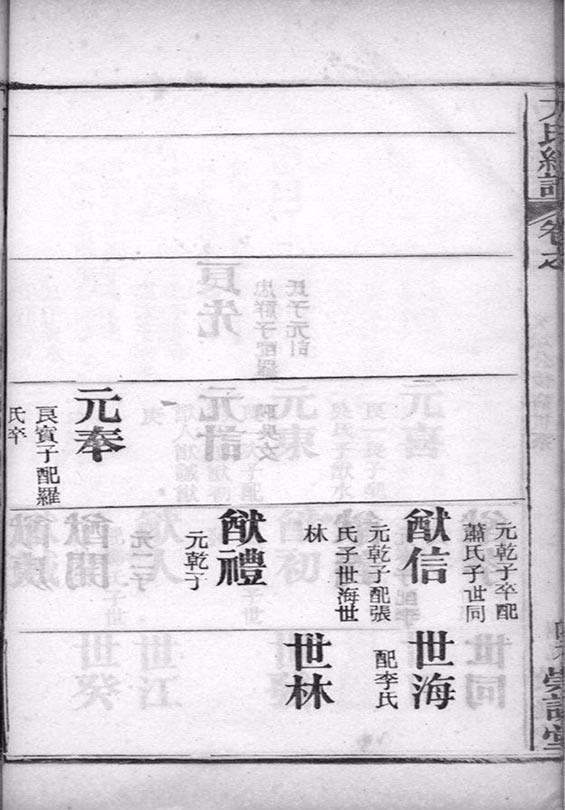 卷之
元奉
良賓子配羅
氏卒
元乾子卒配
蕭氏子世同
猷信
元乾子配張
氏子世海世
林
猷禮
元乾子
世海
配李氏
世林